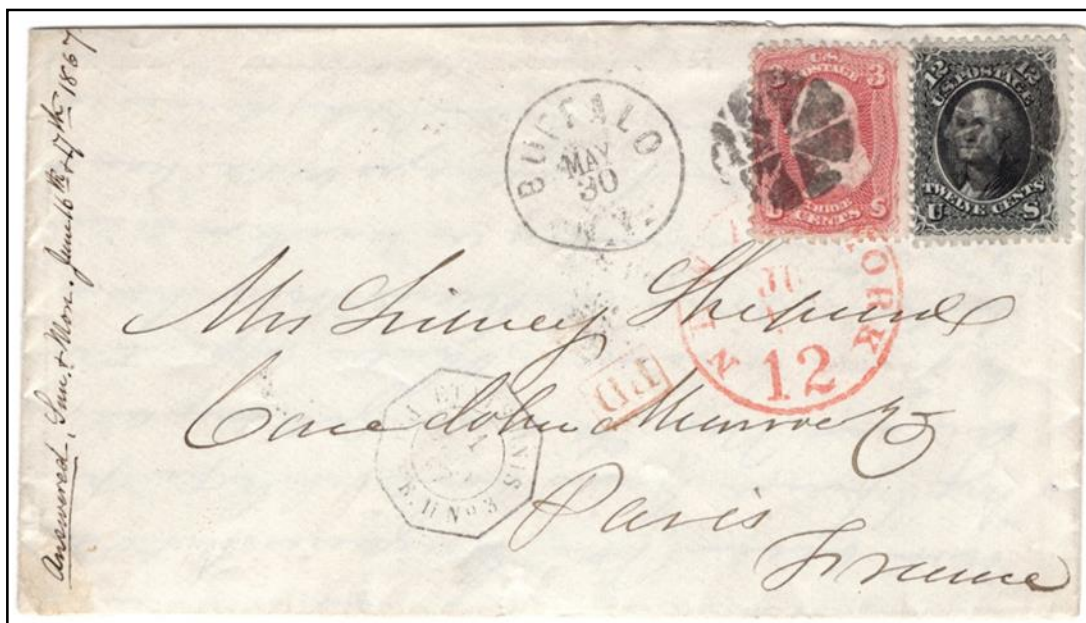 Answered, Sun. & Mon. June 16th & 17th 1867
BUFFALO
MAY
30
N.Y.
3 3
U.S.
POSTAGE
THREE
CENTS
U S
12 12
U.S. POSTAGE
TWELVE CENTS
U S
YORK
12
PD
ET
UNIS
E.U No. 3
Mrs Sidney Shepard
Care John Munroe & Co
Paris
France